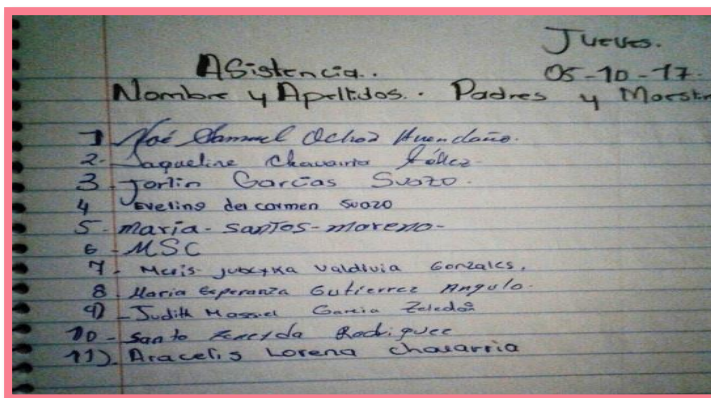 Jueves.
Asistencia.. 05-10-17.
Nombre y Apellidos. Padres y Maestr
1 Noé Samuel Ochoa Avendaño.
2- Jaqueline Chavarria
3 Jorlin Garcias Suazo.
4 Evelino del carmen Suazo
5- maria-santos-moreno-
6 - MSC
7- Valdivia Gonzales.
8 Maria Esperanza Gutierrez Angulo.
9) - Judith Massiel Garcia Zeledón
10 - Santo Rodriguez
11). Aracelis Lorena chavarria